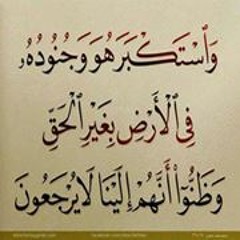 وَٱسْتَكْبَرَ هُوَ وَجُنُودُهُۥ
فِى ٱلْأَرْضِ بِغَيْرِ ٱلْحَقِّ
وَظَنُّوٓا۟ أَنَّهُمْ إِلَيْنَا لَا يُرْجَعُونَ